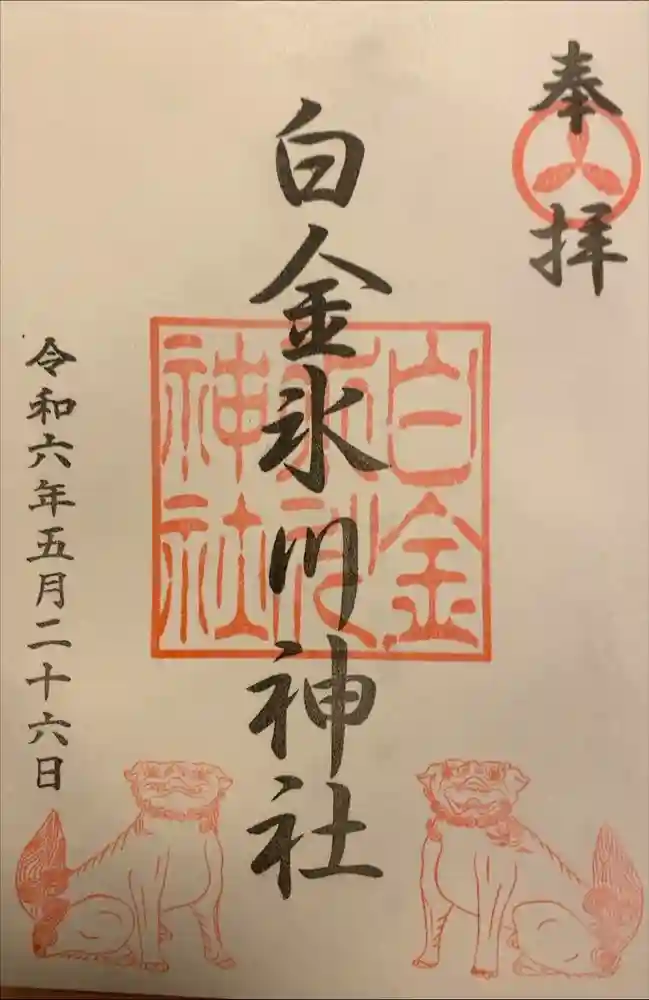 奉拝
白金氷川神社
白金
氷川
神社
令和六年五月二十六日